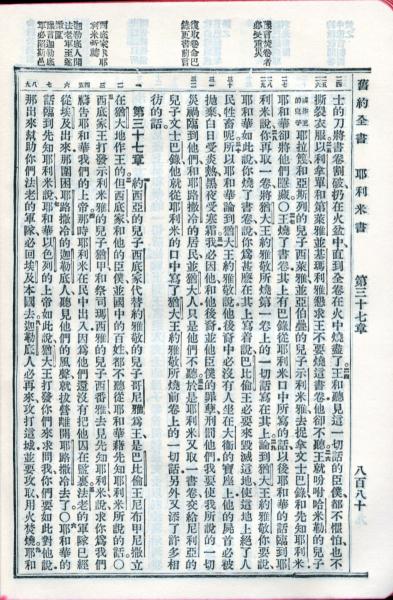 舊約全書　耶利米書　第三十七章　八百八十
士的刀將書卷割破扔在火盆中直到全卷在火中燒盡了王和聽見這一切話的臣僕都不懼怕也不
撕裂衣服以利拿單和第萊雅並基瑪利雅懇求王不要燒這書卷他卻不聽王就吩咐哈米勒的兒子
耶拉篾和亞斯列的兒子西萊雅並亞伯疊的兒子示利米雅去捉拿文士巴錄和先知耶利米
耶和華卻將他們隱藏○王燒了書卷其上有巴錄從耶利米口中所寫的話以後耶和華的話臨到耶
利米說你再取一卷將猶大王約雅敬所燒第一卷上的一切話寫在其上論到猶大王約雅敬你要說
耶和華如此說你燒了書卷說你爲甚麼在其上寫着說巴比倫王必要來毀滅這地使這地上絕了人
民牲畜呢所以耶和華論到猶大王約雅敬說他後裔中必沒有人坐在大衛的寶座上他的屍首必被
拋棄白日受炎熱黑夜受寒霜我必因他和他後裔並他臣僕的罪孽刑罰他們我要使我所說的一切
災禍臨到他們和耶路撒冷的居民並猶大人只是他們不聽於是耶利米又取一書卷交給尼利亞的
兒子文士巴錄他就從耶利米的口中寫了猶大王約雅敬所燒前卷上的一切話另外又添了許多相
彷的話
第三十七章　約西亞的兒子西底家代替約雅敬的兒子哥尼雅爲王是巴比倫王尼布甲尼撒立
在猶大地作王的但西底家和他的臣僕並國中的百姓都不聽從耶和華藉先知耶利米所說的話○
西底家王打發示利米雅的兒子猶甲和祭司瑪西雅的兒子西番雅去見先知耶利米說求你爲我們
禱告耶和華我們的上帝那時耶利米在民中出入因爲他們還沒有把他囚在監裏法老的軍隊已經
從埃及出來那圍困耶路撒冷的迦勒底人聽見他們的風聲就拔營離開耶路撒冷去了○耶和華的
話臨到先知耶利米說耶和華以色列的上帝如此說猶大王打發你們來求問我你們要如此對他說
那出來幫助你們法老的軍隊必回埃及本國去迦勒底人必再來攻打這城並要攻取用火焚燒耶和